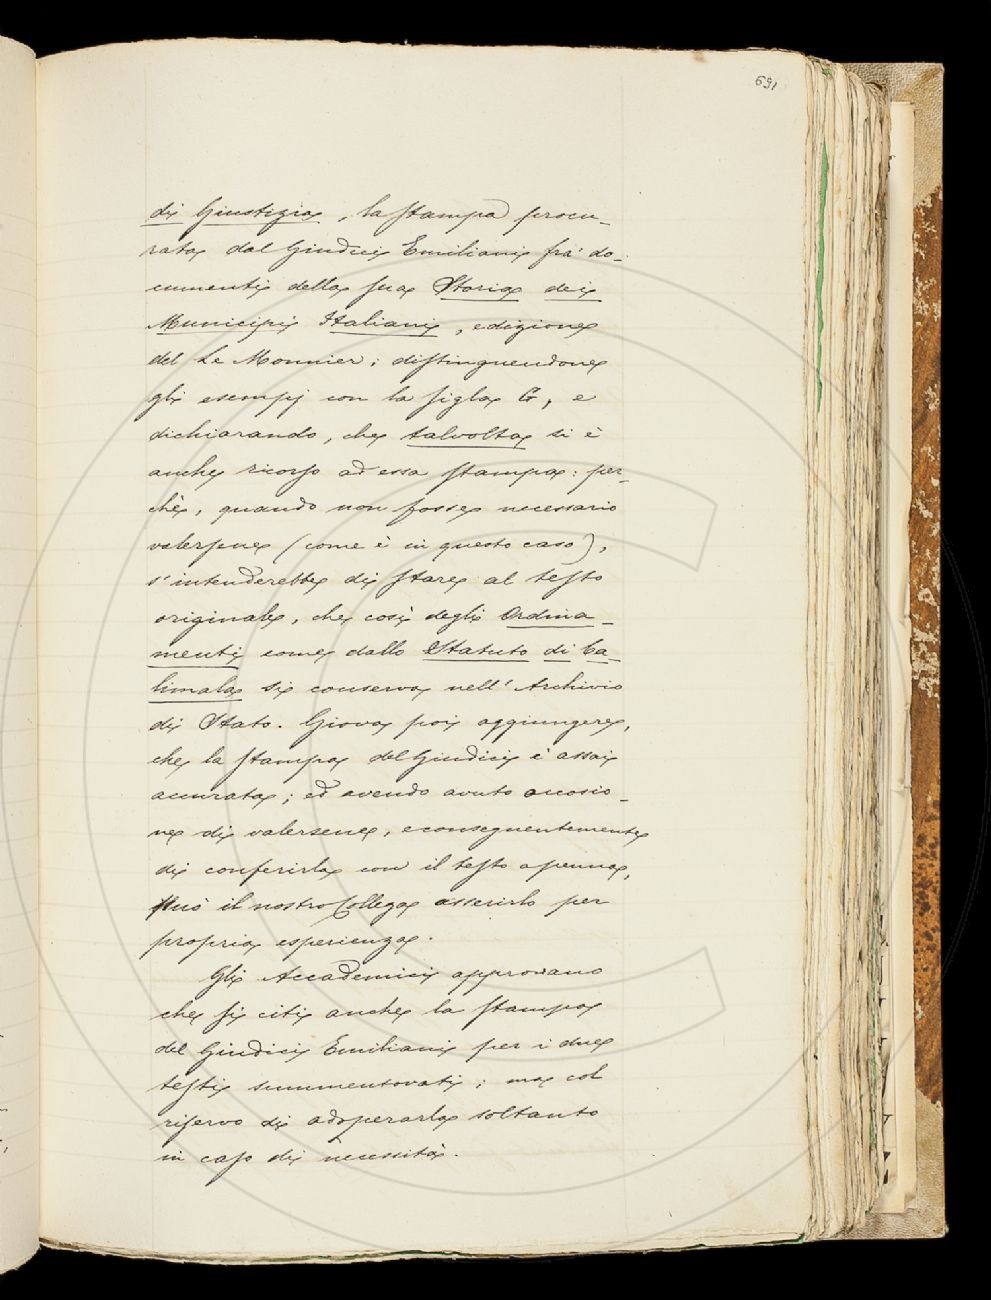 691
di Giustizia, la stampa procu-
rata dal Giudici Emiliani fra' do-
cumenti della sua Storia dei
Municipi Italiani, edizione
del Le Monnier; distinguendone
gli esempj con la sigla G, e
dichiarando, che talvolta si è
anche ricorso ad essa stampa: per-
chè, quando non fosse necessario
valersene (come è in questo caso),
s'intenderebbe di stare al testo
originale, che così degli Ordina-
menti come dello Statuto di Ca-
limala si conserva nell'Archivio
di Stato. Giova poi aggiungere,
che la stampa del Giudici è assai
accurata; ed avendo avuto occasio-
ne di valersene, e conseguentemente
di conferirla con il testo a penna,
può il nostro Collega asserirlo per
propria esperienza.
Gli Accademici approvano
che si citi anche la stampa
del Giudici Emiliani per i due
testi summentovati; ma col
riservo di adoperarla soltanto
in caso di necessità.